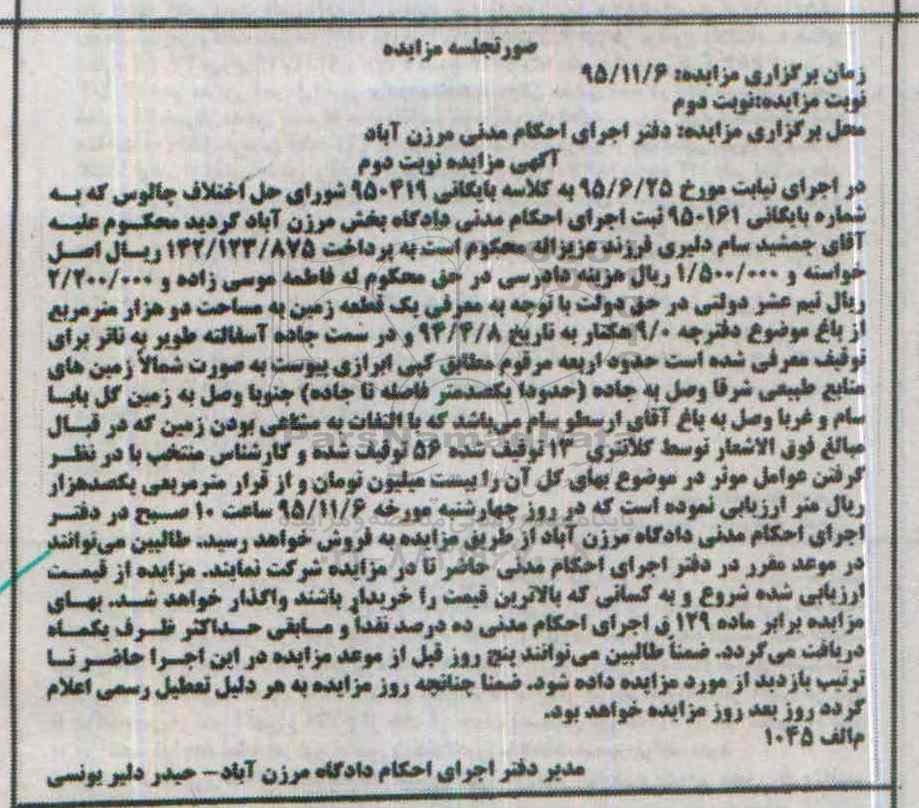 صورتجلسه مزایده
زمان برگزاری مزایده: ۹۵/۱۱/۶
نوبت مزایده:نوبت دوم
محل برگزاری مزایده: دفتر اجرای احکام مدنی مرزن آباد
آگهی مزایده نوبت دوم
در اجرای نیابت مورخ ۹۵/۶/۲۵ به کلاسه بایگانی ۹۵۰۴۱۹ شورای حل اختلاف چالوس که به
شماره بایگانی ۹۵۰۱۶۱ ثبت اجرای احکام مدنی دادگاه بخش مرزن آباد گردید محکوم علیه
آقای جمشید سام دلیری فرزند عزیزاله محکوم است به پرداخت ۱۴۲/۱۲۳/۸۷۵ ریال اصل
خواسته و ۱/۵۰۰/۰۰۰ ریال هزینه دادرسی در حق محکوم له فاطمه موسی زاده و ۲/۲۰۰/۰۰۰
ریال نیم عشر دولتی در حق دولت با توجه به معرفی یک قطعه زمین به مساحت دو هزار مترمربع
از باغ موضوع دفترچه ۹/۰ هکتار به تاریخ ۹۴/۴/۸ و در سمت جاده آسفالته طویر به ناتر برای
توقیف معرفی شده است حدود اربعه مرقوم مطابق کپی ابرازی پیوست به صورت شمالاً زمین های
منابع طبیعی شرقا وصل به جاده (حدودا یکصدمتر فاصله تا جاده) جنوبا وصل به زمین گل بابا
سام و غربا وصل به باغ آقای ارسطو سام می‌باشد که با التفات به مشاعی بودن زمین که در قبال
مبالغ فوق الاشعار توسط کلانتری ۱۳ توقیف شده ۵۶ توقیف شده و کارشناس منتخب با در نظر
گرفتن عوامل موثر در موضوع بهای کل آن را بیست میلیون تومان و از قرار مترمربعی یکصدهزار
ریال متر ارزیابی نموده است که در روز چهارشنبه مورخه ۹۵/۱۱/۶ ساعت ۱۰ صبح در دفتر
اجرای احکام مدنی دادگاه مرزن آباد از طریق مزایده به فروش خواهد رسید. طالبین می‌توانند
در موعد مقرر در دفتر اجرای احکام مدنی حاضر تا در مزایده شرکت نمایند. مزایده از قیمت
ارزیابی شده شروع و به کسانی که بالاترین قیمت را خریدار باشند واگذار خواهد شد. بهای
مزایده برابر ماده ۱۲۹ ق اجرای احکام مدنی ده درصد نقداً و مابقی حداکثر ظرف یکماه
دریافت می‌گردد. ضمناً طالبین می‌توانند پنج روز قبل از موعد مزایده در این اجرا حاضر تا
ترتیب بازدید از مورد مزایده داده شود. ضمنا چنانچه روز مزایده به هر دلیل تعطیل رسمی اعلام
گردد روز بعد روز مزایده خواهد بود.
م‌الف ۱۰۴۵
مدیر دفتر اجرای احکام دادگاه مرزن آباد- حیدر دلیر یونسی